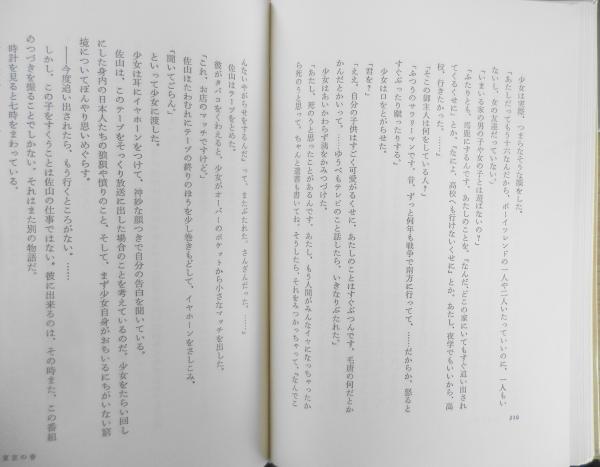 少女は実際、つまらなそうな顔をした。
「あたしだってもう十六なんだから、ボーイフレンドの一人や二人いたっていいのに、一人もい
ないし、女の友達だっていない。」
「いまいる家の男の子や女の子とは遊ばないの？」
「ふたりとも、馬鹿にするんです。あたしのことを、『なんだ、どこの家にいてもすぐ追い出され
てくるくせに』とか、『なによ、高校へも行けないくせに』とか。あたし、夜学でもいいから、高
校、行きたかった。」
「そこの御主人は何をしている人？」
「ふつうのサラリーマンです。昔、ずっと何年も戦争で南方に行ってて、……だからか、怒ると
すぐぶったり蹴ったりする。」
少女は口をとがらせた。
「君を？」
「ええ。自分の子供はすごく可愛がるくせに、あたしのことはすぐぶつんです。毛唐の何だとか
かんだとかいって、……ゆうべもテレビのこと話したら、いきなりぶたれた。」
少女はあいかわらず溝をかみつづけた。
「あたし、死のうと思ったことがあるんです。あたし、もう人間がみんなイヤになっちゃったか
ら死のうと思って、ちゃんと遺書も書いてね。そうしたら、それをみつかっちゃって、『なんでこ
210
んないやがらせをするんだ』って、またぶたれた。さんざんだった。……」
佐山はテープをとめた。
彼がタバコをくわえると、少女がオーバーのポケットから小さなマッチを出した。
「これ、お店のマッチですけど。」
佐山はたわむれにテープの終りのほうを少し巻きもどして、イヤホーンをさしこみ、
「聞いてごらん。」
といって少女に渡した。
少女は耳にイヤホーンをつけて、神妙な顔つきで自分の告白を聞いている。
佐山は、このテープをそっくり放送に出した場合のことを考えているのだ。少女をたらい回し
にした身内の日本人たちの狼狽や憤りのこと、そして、まず少女自身がおちいるにちがいない窮
境についてぼんやり思いめぐらす。
――今度追い出されたら、もう行くところがない。……
しかし、この子をすくうことは佐山の仕事ではない。彼に出来るのは、その時また、この番組
のつづきを撮ることでしかない。それはまた別の物語だ。
時計を見ると七時をまわっている。
東京の春